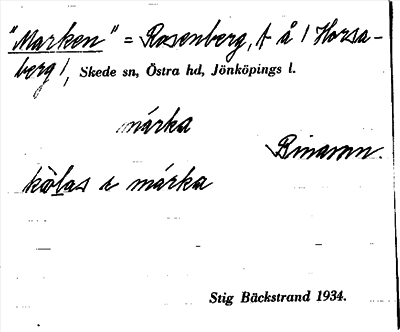 "Marken" = Rosenberg, t å / Horsa-
berg /, Skede sn, Östra hd, Jönköpings l.
márka
Binamn.
kålas a márka
Stig Bäckstrand 1934.